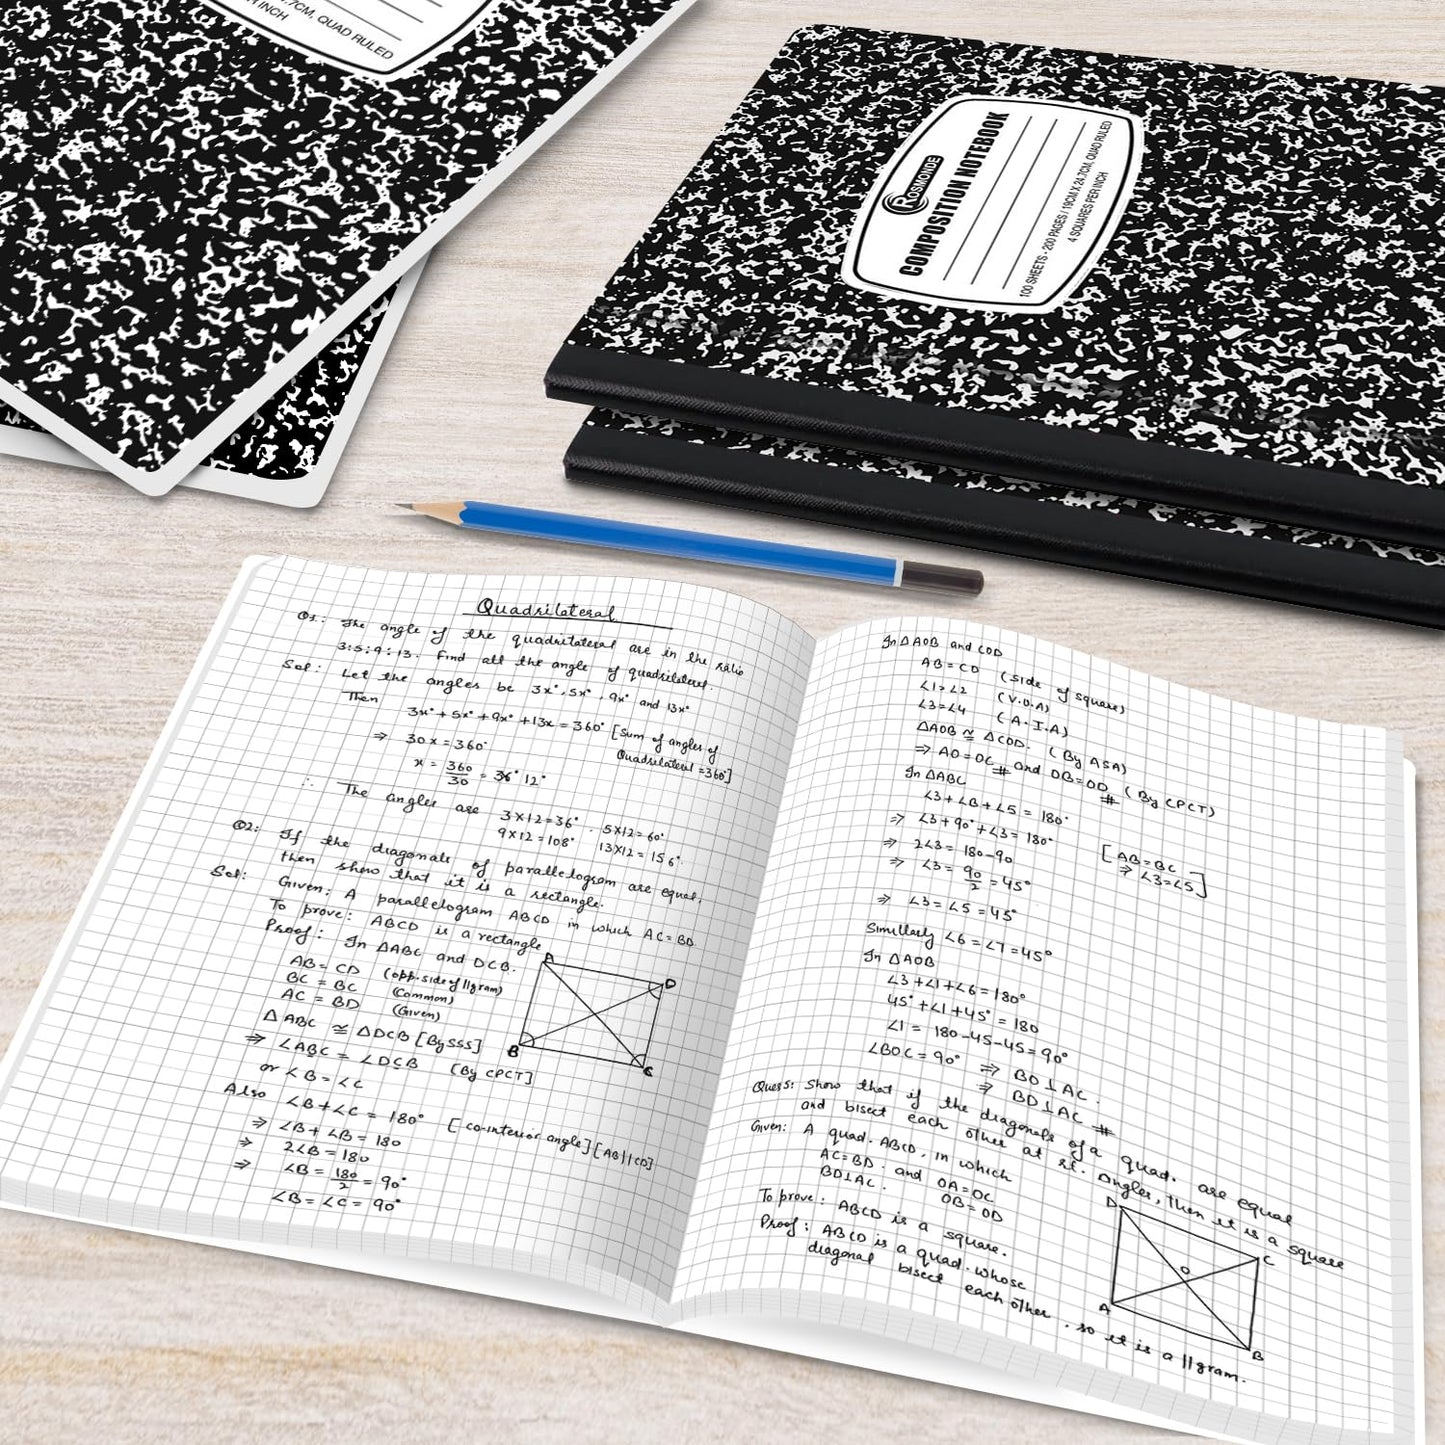 7CM, QUAD RULED
R INCH
ROSMONDE
COMPOSITION NOTEBOOK
100 SHEETS - 200 PAGES / 19CM X 24.7CM, QUAD RULED
4 SQUARES PER INCH
Quadrilateral
Q1: The angle of the quadrilateral are in the ratio
3:5:9:13. Find all the angle of quadrilateral.
Sol: Let the angles be 3x°, 5x°, 9x° and 13x°
Then
3x° + 5x° + 9x° + 13x = 360° [Sum of angles of
Quadrilateral = 360°]
⇒ 30x = 360°
x = 360/30 = 36° 12°
∴ The angles are 3×12=36°. 5×12=60°
9×12=108° 13×12=156°.
Q2: If the diagonals of parallelogram are equal,
then show that it is a rectangle.
Sol: Given: A parallelogram ABCD in which AC=BD
To prove: ABCD is a rectangle
Proof: In ΔABC and DCB.
AB = CD (opp. side of ||gram)
BC = BC (Common)
AC = BD (Given)
Δ ABC ≅ ΔDCB [By SSS]
⇒ ∠ABC = ∠DCB [By CPCT]
or ∠B = ∠C
Also ∠B+∠C = 180° [co-interior angle] [AB||CD]
⇒ ∠B+∠B = 180
⇒ 2∠B = 180
⇒ ∠B = 180/2 = 90°
∠B = ∠C = 90°
A
D
B
C
In ΔAOB and COD
AB = CD (side of square)
∠1=∠2 (V.O.A)
∠3=∠4 (A.I.A)
ΔAOB ≅ ΔCOD. (By ASA)
⇒ AO=OC # and OB=OD # (By CPCT)
In ΔABC
∠3+∠B+∠5 = 180°
⇒ ∠3+90°+∠3 = 180° [AB=BC
⇒ ∠3=∠5]
⇒ 2∠3 = 180-90
⇒ ∠3 = 90/2 = 45°
⇒ ∠3=∠5=45°
Simillarly ∠6=∠7=45°
In ΔAOB
∠3+∠1+∠6 = 180°
45°+∠1+45° = 180
∠1 = 180-45-45 = 90°
∠BOC = 90° ⇒ BO⊥AC.
⇒ BD⊥AC #
Ques5: Show that if the diagonals of a quad. are equal
and bisect each other at rt. angles, then it is a square
Given: A quad. ABCD, in which
AC=BD. and OA=OC
BD⊥AC. OB=OD
To prove: ABCD is a square.
Proof: ABCD is a quad. whose
diagonal bisect each other. so it is a ||gram.
D
C
O
A
B